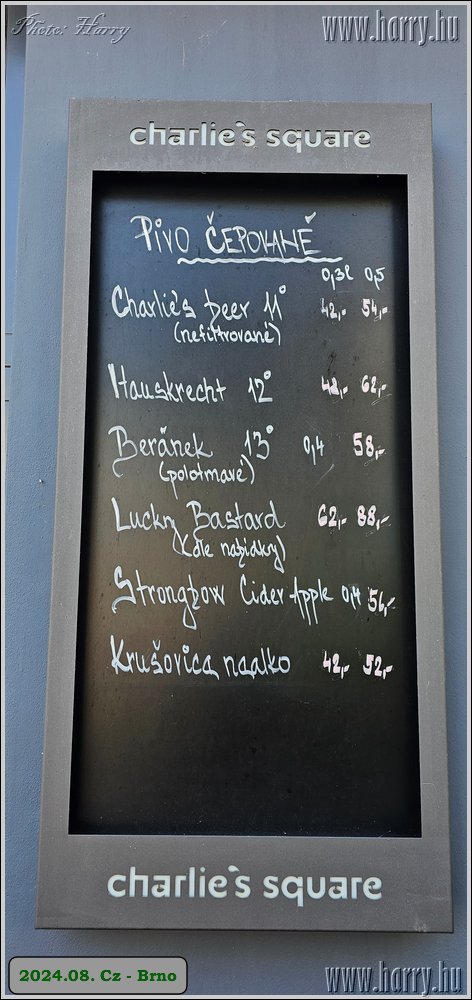 Photo: Harry
www.harry.hu
charlie's square
PIVO ČEPOVANÉ
0,3l 0,5
Charlie's beer 11° 42,- 54,-
(nefiltrované)
Hauskrecht 12° 48,- 62,-
Beránek 13° 0,4 58,-
(polotmavé)
Lucky Bastard 62,- 88,-
(dle nabídky)
Strongbow Cider Apple 0,4 56,-
Krušovica nealko 42,- 52,-
charlie's square
2024.08. Cz - Brno
www.harry.hu